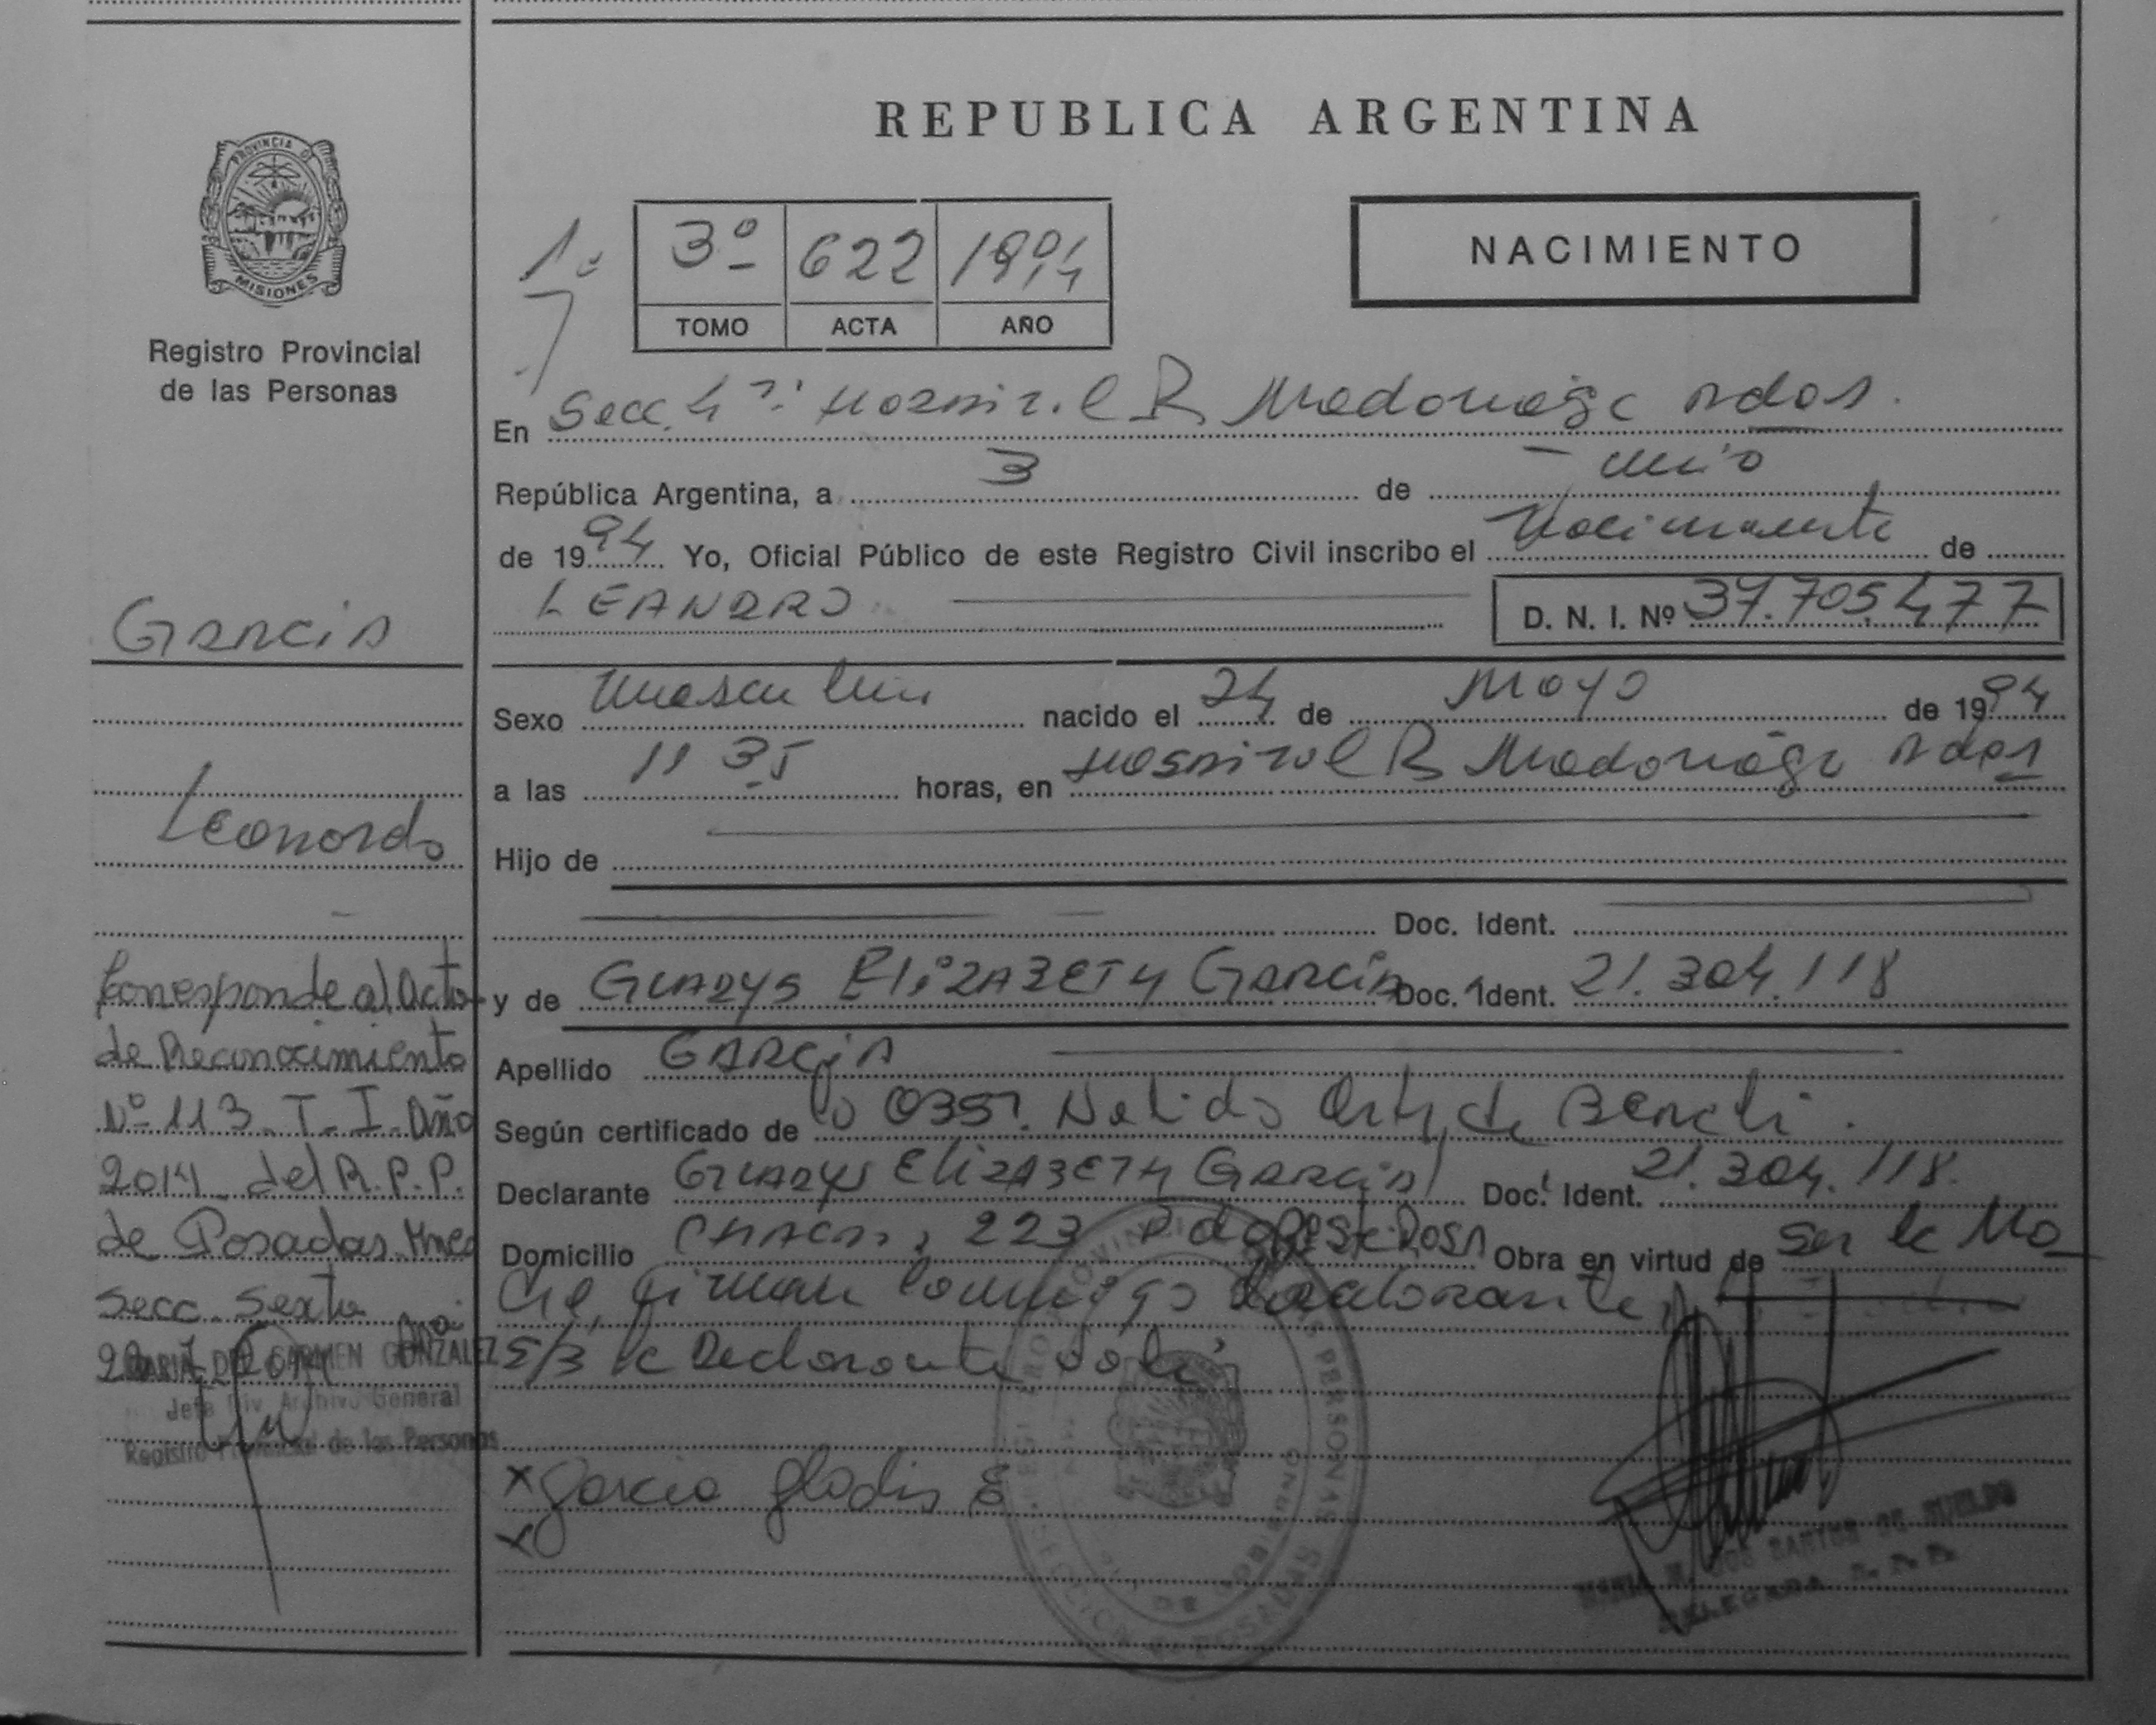 REPUBLICA ARGENTINA
PROVINCIA DE
MISIONES
Registro Provincial
de las Personas
1a
3º 622 1994
TOMO ACTA AÑO
NACIMIENTO
En Secc. 4ª Hospital R Madariaga Pdas.
República Argentina, a 3 de
de 1994 Yo, Oficial Público de este Registro Civil inscribo el Nacimiento de
LEANDRO D. N. I. Nº 37.705.477
Garcia
Sexo Masculino nacido el 24 de Mayo de 1994
a las 11 35 horas, en Hospital R Madariaga Pdas
Leonardo
Hijo de
Doc. Ident.
y de GLADYS ELIZABETH GARCIA Doc. Ident. 21.304.118
Apellido GARCIA
Según certificado de Nelida de
Declarante GLADYS ELIZABETH GARCIA Doc. Ident. 21.304.118.
Domicilio 223 Obra en virtud de ser la Ma
dre, firman conmigo
S/B la Declarante
Corresponde al Acta
de Reconocimiento
Nº 113 T- I- Año
2014 del R.P.P.
de Posadas Mnes
Secc. Sexta
MARIA DEL CARMEN GONZALEZ
Jefa Div. Archivo General
Registro Provincial de las Personas
x Garcia Gladis E.
x
DELEGADA R. P. P.